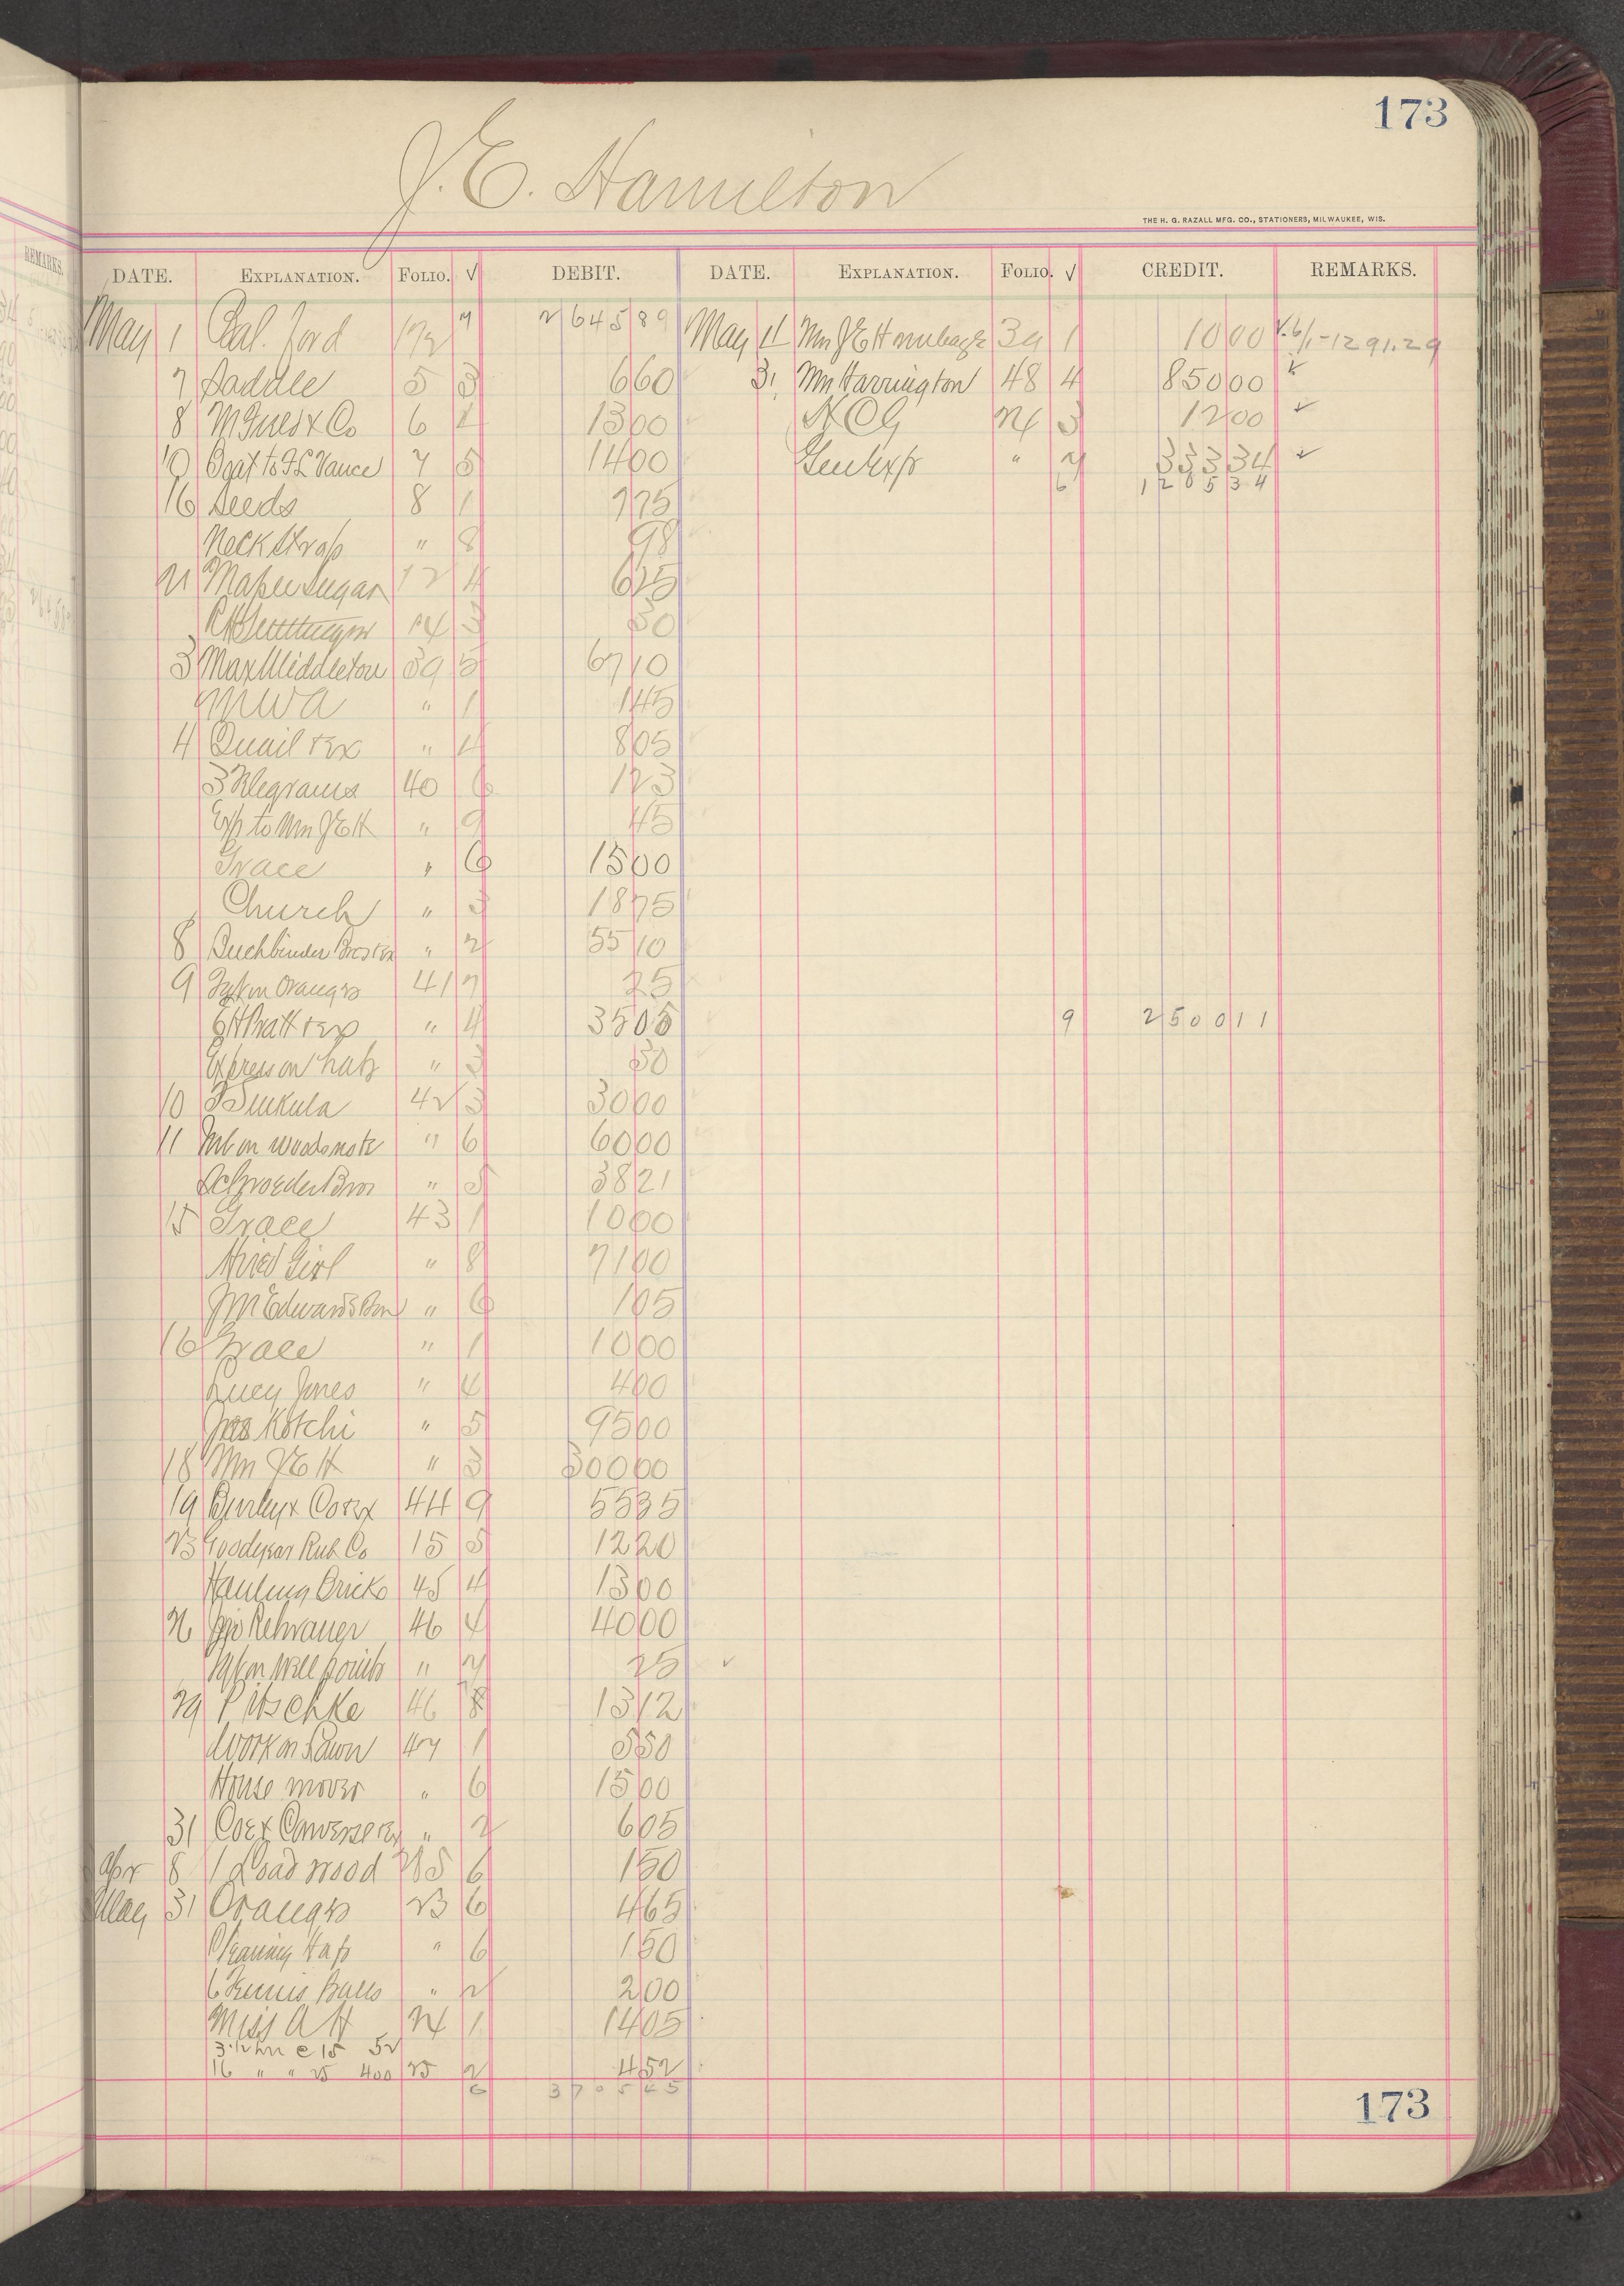 173
J. E. Hamilton
THE H. G. RAZALL MFG. CO., STATIONERS, MILWAUKEE, WIS.
REMARKS.
DATE. EXPLANATION. FOLIO. √ DEBIT. DATE. EXPLANATION. FOLIO. √ CREDIT. REMARKS.
May 1 Bal. Ford 172 7 2645 89 May 11 Mrs J E H 39 1 10 00 1291.29
7 Saddle 5 3 6 60 31 Mrs Harrington 48 4 850 00 ✓
8 & Co 6 13 00 N C G 24 3 12 00 ✓
10 Boat to F L Vance 7 5 14 00 Gen Exp " 7 333 34 ✓
6 1205 34
16 Seeds 8 1 7 75
Neck Strap " 8 98
21 Maple Sugar 12 4 6 25
14 3 50
3 Max Middleton 39 5 67 10
M W A " 1 1 45
4 Quail & Ex " 4 8 05
3 Telegrams 40 6 1 23
Exp to Mrs J E H " 9 45
Grace " 6 15 00
Church " 3 18 75
8 Buchbinder Bros & Ex " 2 55 10
9 Frt on Oranges 41 7 25
E H Pratt & Exp " 4 35 05 9 2500 11
Express on hats " 3 50
10 42 3 30 00
11 Int on Woods note " 6 60 00
Schroeder Bros " 5 38 21
15 Grace 43 1 10 00
Hired Girl " 8 71 00
J M Edwards & Son " 6 1 05
16 Grace " 1 10 00
Lucy Jones " 4 4 00
Kotchi " 5 95 00
18 Mrs J E H " 3 300 00
19 Burley & Co & Ex 44 9 55 35
23 Goodyear Rub Co 15 5 12 20
Hauling Bricks 45 4 13 00
26 Geo Rehrauer 46 4 40 00
Frt on Well points " 7 25 ✓
29 Pitschke 46 8 13 12
Work on Lawn 47 1 5 50
House mover " 6 15 00
31 Coe & Converse & Ex " 2 6 05
Apr 8 1 Load wood 25 6 1 50
May 31 Oranges 23 6 4 65
Cleaning Hats " 6 1 50
6 Tennis Balls " 2 2 00
Miss A H 24 1 14 05
3½ hrs @ 15 52
16 " " 25 400 25 2 4 52
6 3705 45
173